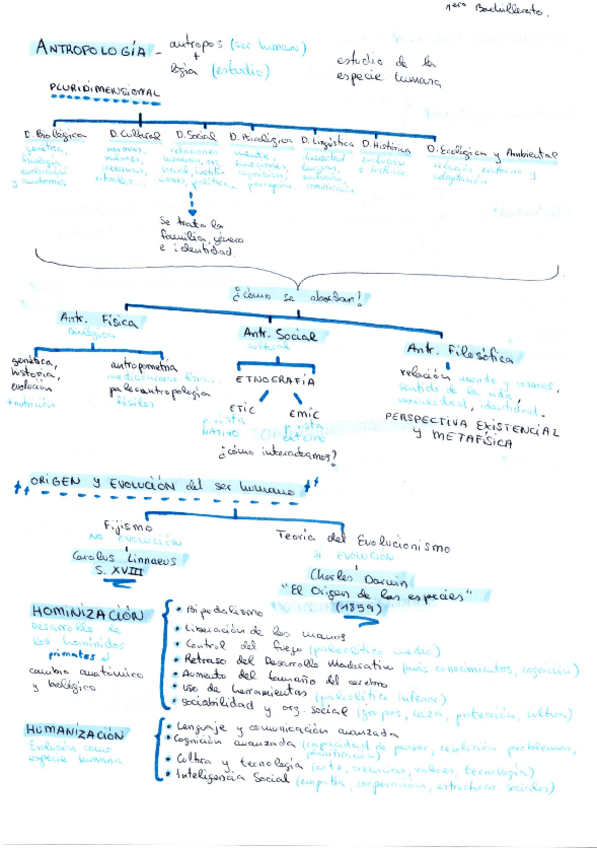 1ero Bachillerato.
ANTROPOLOGÍA - antropos (ser humano)
+
logía (estudio)
estudio de la
especie humana
PLURIDIMENSIONAL
D. Biológica D. Cultural D. Social D. Psicológica D. Lingüística D. Histórica D. Ecológica y Ambiental
genética, normas, relaciones mente diversidad evolución relación entorno y
biología, valores, emociones, lenguas, e historia adaptación
evolución creencias, cognición,
y anatomía rituales... política... percepción comunicación
Se trata la
familia, género
e identidad.
¿Cómo se abordan?
Antr. Física
biológica
Antr. Social
cultural
Antr. Filosófica
genética,
historia,
evolución
+ nutrición
antropometría
mediciones físicas
paleoantropología
fósiles
ETNOGRAFÍA
ETIC EMIC
NATIVO
¿cómo interactuamos?
relación mundo y
sentido de la vida,
moralidad, identidad.
PERSPECTIVA EXISTENCIAL
Y METAFÍSICA
ORIGEN Y EVOLUCIÓN del ser humano
Fijismo
NO EVOLUCIÓN
Carolus Linnaeus
S. XVIII
Teoría del Evolucionismo
SI EVOLUCIÓN
Charles Darwin
"El Origen de las especies"
(1859)
HOMINIZACIÓN
Desarrollo de
los homínidos
primates
cambio anatómico
y biológico
• Bipedalismo
• Liberación de las manos
• Control del fuego (paleolítico medio)
• Retraso del Desarrollo Madurativo (más conocimientos, cognición)
• Aumento del tamaño del cerebro
• Uso de herramientas (paleolítico inferior)
• Sociabilidad y org. social (grupos, caza, protección, cultura)
HUMANIZACIÓN
Evolución como
especie humana
• Lenguaje y comunicación avanzada
• Cognición avanzada (capacidad de pensar, resolución problemas,
planificación)
• Cultura y tecnología (arte, creencias, valores, tecnología)
• Inteligencia Social (empatía, cooperación, estructuras sociales)